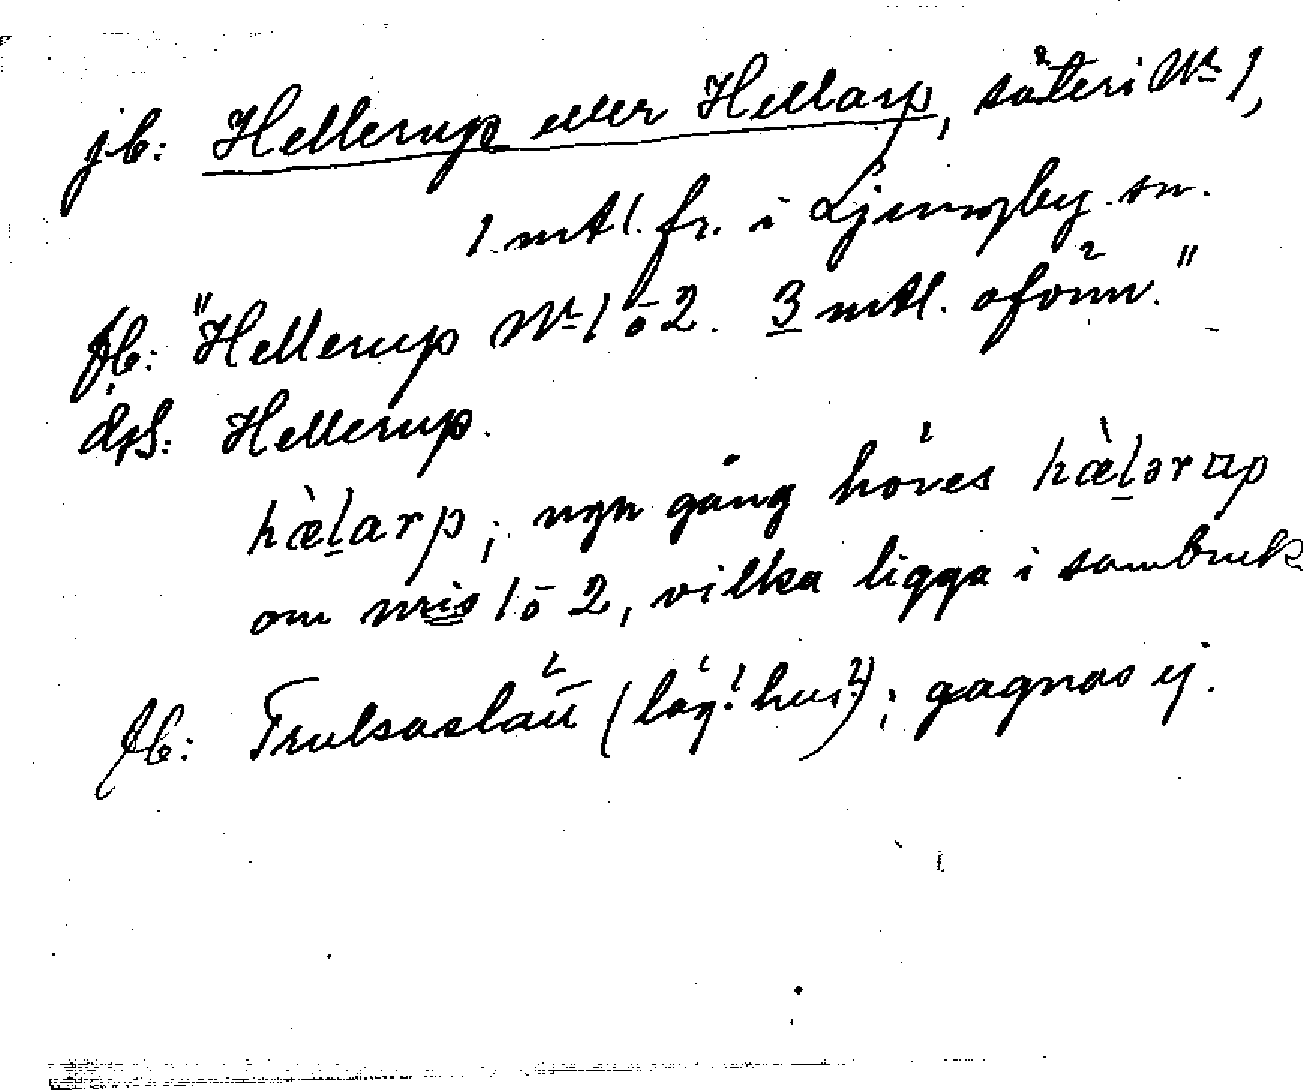 jb: Hellerup eller Hellarp, säteri No 1,
1 mtl. fr. i Ljungby sn.
fb: "Hellerup No 1 o 2. 3 mtl. oförm."
dps. Hellerup.
hæ̀l̠arp; ngn gång höres hæ̀l̠ərap
om nris 1 o 2, vilka ligga i sambruk
fb: (läg. hus?); gagnas ej.